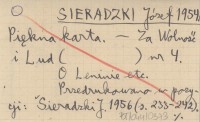 SIERADZKI Józef 1954
Piękna karta. — Za Wolność
i Lud ( ) nr 4.
O Leninie etc.
Przedrukowano w pozy-
cji: Sieradzki J. 1956 (s. 233-242).